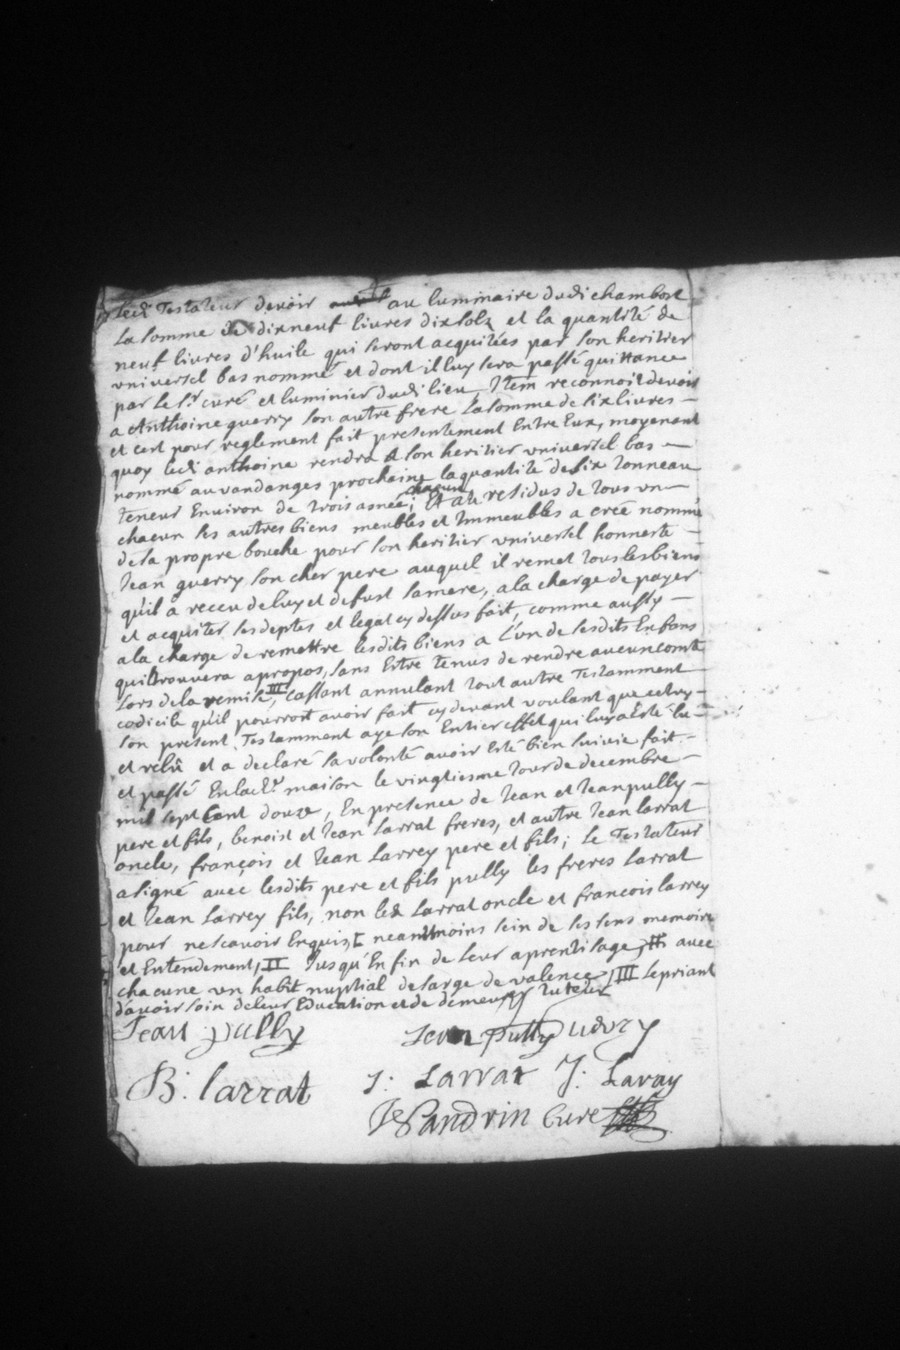 Ledt Testateur devoir au luminaire dudi chambost
La somme de dixneuf livres dix solz et la quantité de
neuf livres d'huile qui seront acquitées par son heritier
vniversel bas nommé et dont il luy sera passé quittance
par le Sr curé et luminier dudi lieu, Item reconnoit devoir
a Anthoine guerry son autre frere La somme de six livres –
et cest pour reglement fait presentement Entre Eux, moyenent
quoy ledi anthoine rendra a son heritier vniversel bas –
nommé au vandanges prochaine la quantité de six tonneau
teneur Environ de trois asnée chacun; Et au residus de tous vn –
chacun ses autres biens meubles et Immeubles a creé nommé
de sa propre bouche pour son heritier vniversel honneste –
Jean guerry son cher pere auquel il remet tous les biens
qu'il a receu de luy et defunt sa mere, a la charge de payer
et acquiter ses deptes et legat cy dessus fait, comme aussy –
a la charge de remettre lesdits biens a L'un de sesdits Enfans
quil trouvera apropos, sans Estre tenus de rendre aucun comte
Lors de la remise, III cassant annulant tout autre Testamment
codicile qu'il pourroit avoir fait cy devant voulant que cetuy –
son present Testamment aye son Entier effet qui luy a Esté lu –
et relû et a declaré sa volonté avoir Esté bien suivie fait –
et passé En lad. maison le vingtiesme Jour de decembre –
mil sept Cent douze, En presence de Jean et Jean pully –
pere et fils, benoist et Jean Larrat freres, et autre Jean larrat
oncle, françois et Jean Larrey pere et fils; Le Testateur
a signé avec lesdits pere et fils pully les freres Larrat
et Jean Larrey fils, non led Larrat oncle et francois larrey
pour ne scavoir Enquis, I neantmoins sein de ses sens memoire
et Entendement, II Jusqu'En fin de leur aprentisage, II avec
chacune un habit nuptial de sarge de valence, III Le priant
d'avoir soin de leur Education et de demeurer tuteur
Jean pully Jean Pully guerry
B: larrat J: Larrat J: Laray
Sandrin Curé